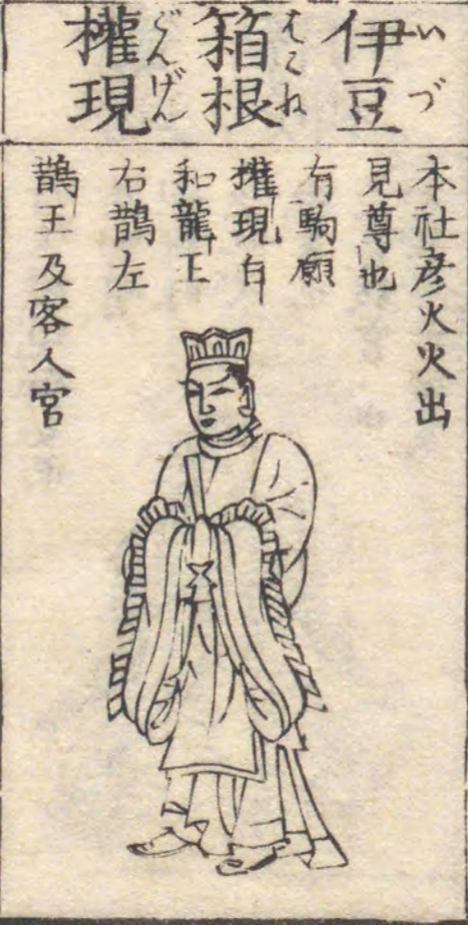 伊豆
いづ
箱根
はこね
權現
ごんげん
本社彦火火出
見尊也
有駒願
權現白
和龍王
右鵲左
鵲王及客人宮